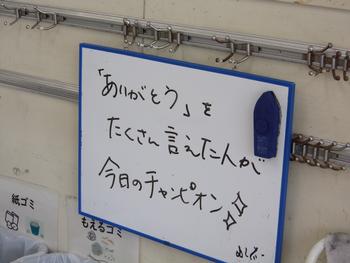 「ありがとう」を
たくさん言えた人が
今日のチャンピオン
紙ゴミ
もえるゴミ